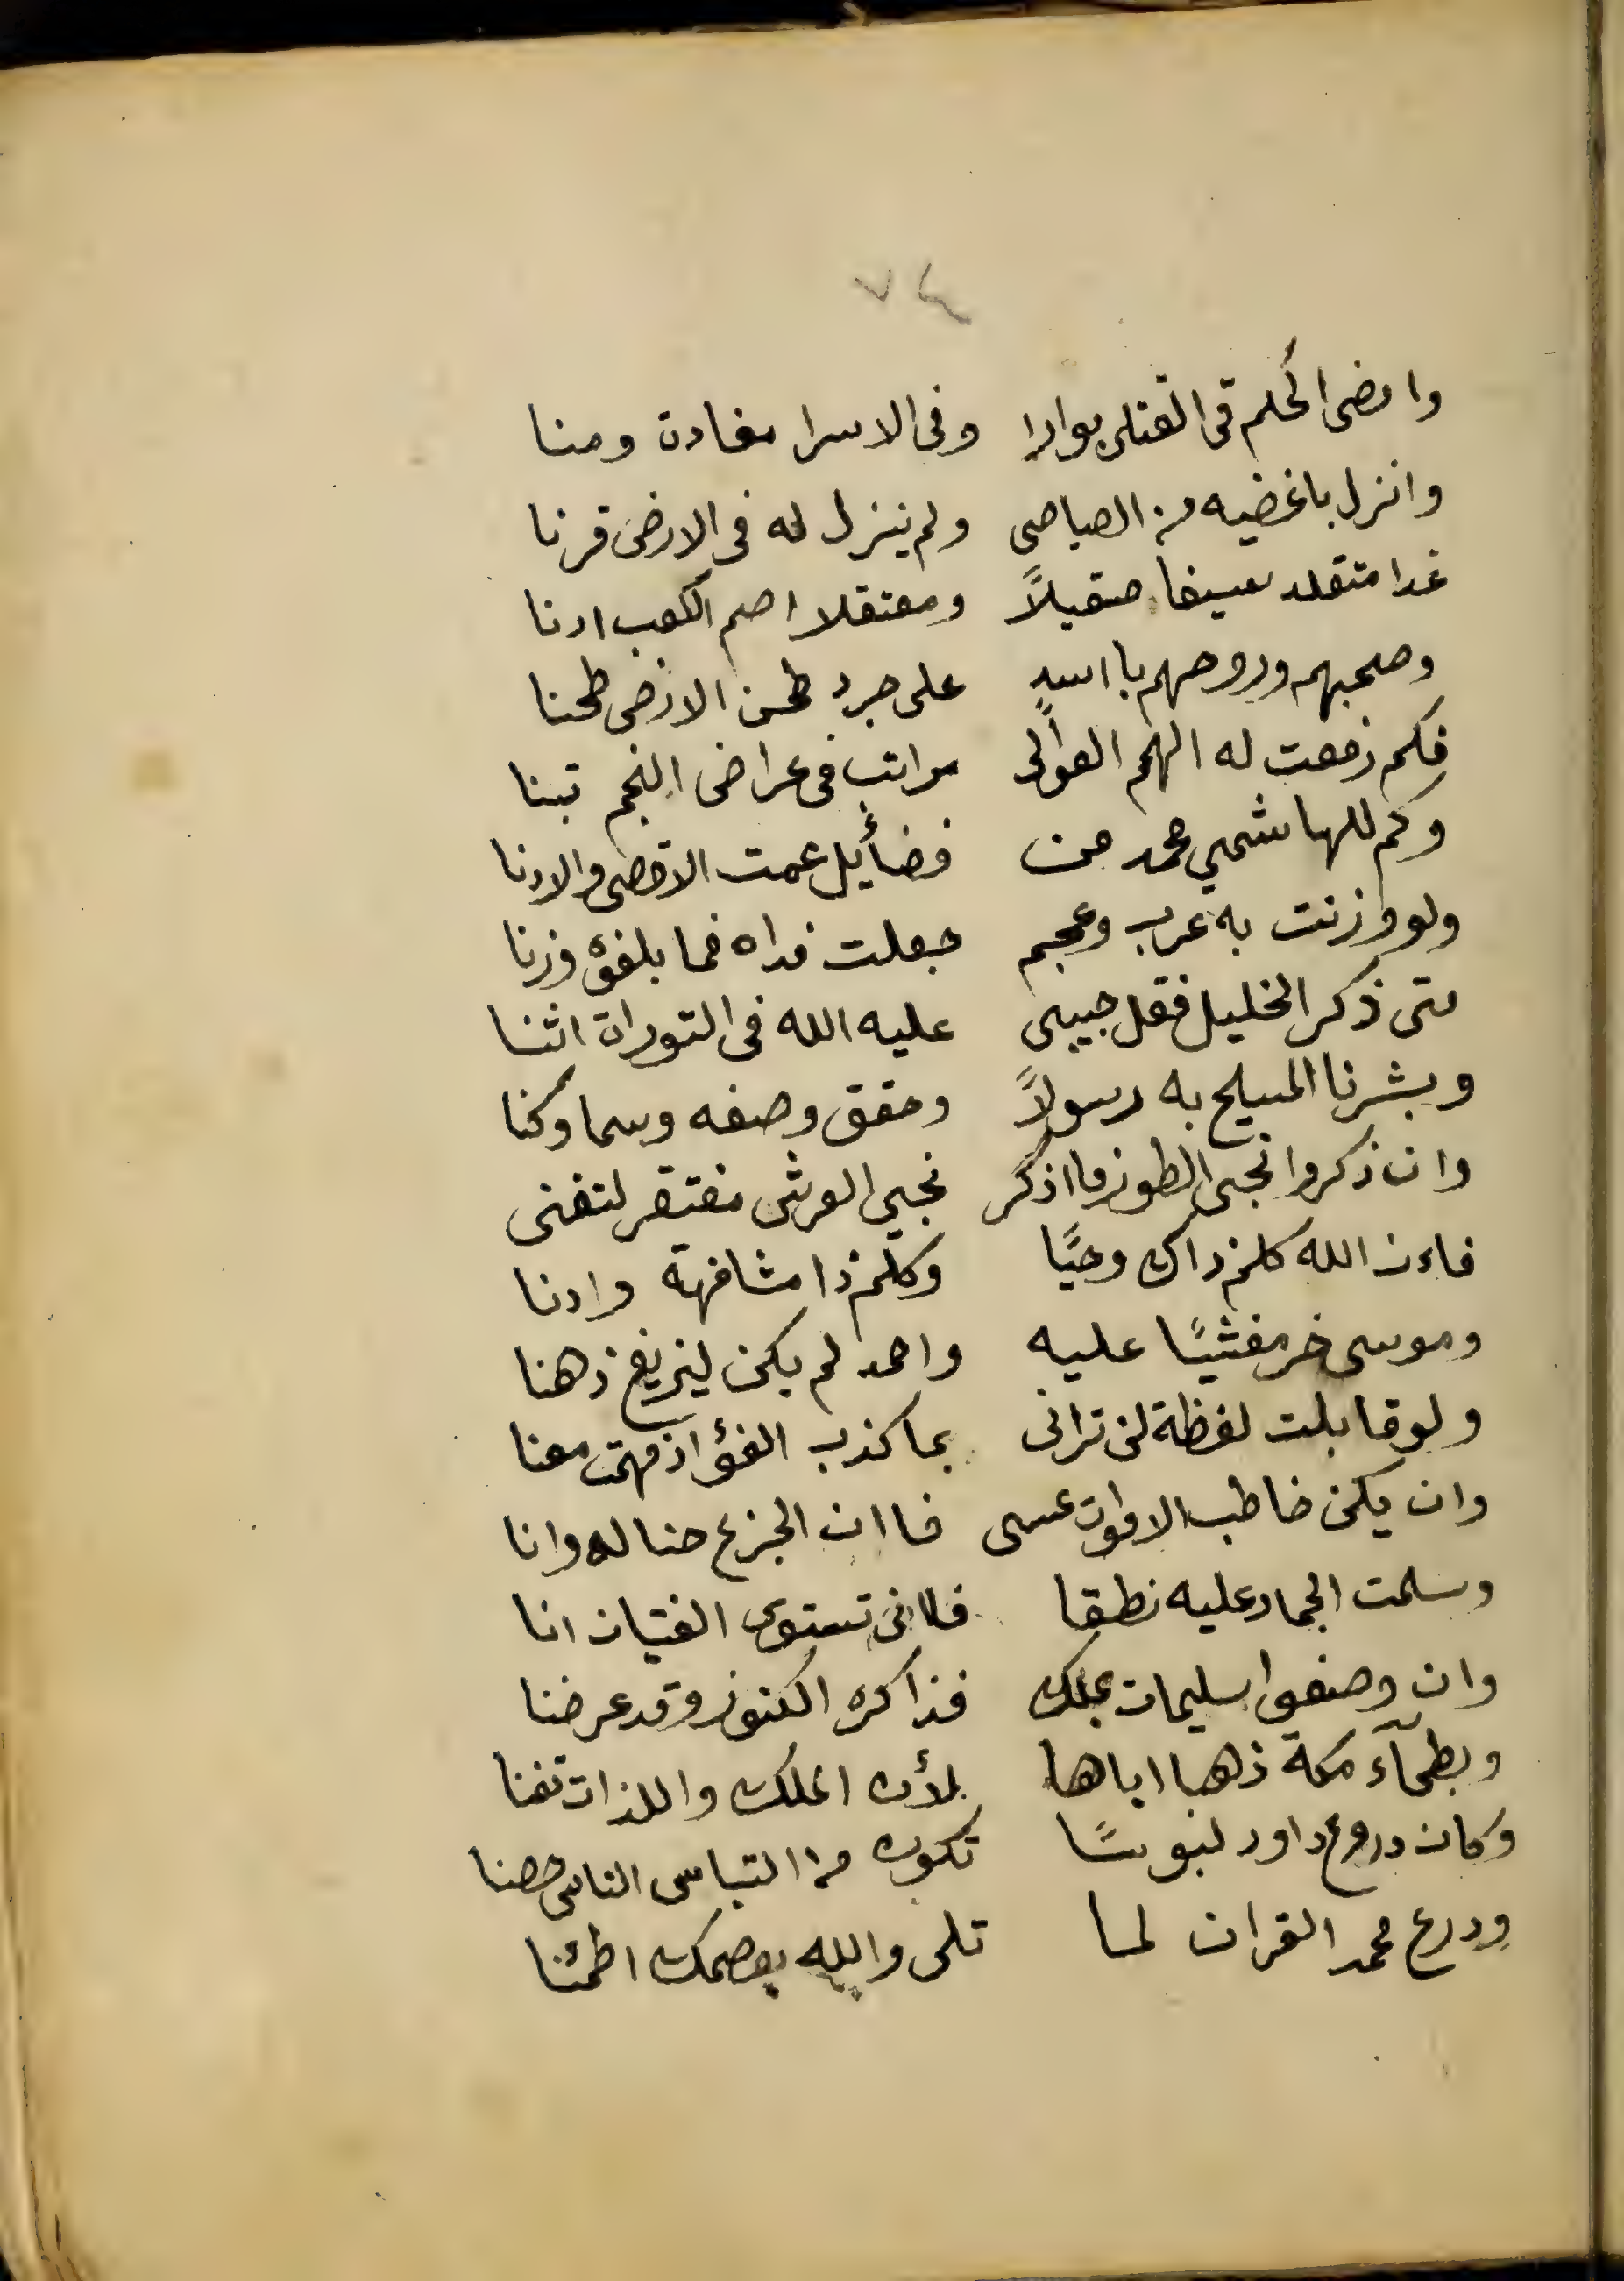 ٧٤
وامضى الحكم فى القتلى بوارا وفى الاسرا مفادة ومنا
وانزل باغضيه من الصياصى ولم ينزل له فى الارض قرنا
غدا متقلد سيفا صقيلاً ومعتقلا اصم الكعب ادنا
وصحبهم وروحهم بااسدٍ على جرد طحن الارض طحنا
فكم رفعت له الهمم العوالى مراتب فى عراض النجم تبنا
وكم للهاشمي محمد من فضأيل عمت الاقصى والادنا
ولو وزنت به عرب وعجم جعلت فداه فما بلغؤ وزنا
متى ذكر الخليل فقل حبيبى عليه الله فى التوراة اثنا
وبشرنا المسيح به رسولاً وحقق وصفه وسما وكنا
وان ذكروا نجى الطور فااذكر نجيي العرش مفتقر لتغنى
فاءن الله كلم ذاك وحيًا وكلم ذا مشافهة وادنا
وموسى خر مغشيًا عليه واحمد لم يكن ليزيغ ذهنا
ولو قابلت لفظة لن ترانى بما كذب الفؤاد فهمت معنا
وان يكن خاطب الاموات عيسى فاان الجزع حنا له وانا
وسلمت الجماد عليه نطقا فلاانى تستوى الفتيان انا
وان وصفوا سليمان بملك فذا كره الكنوز وقد عرضنا
وبطحآء مكة ذهبا اباها لأن الملك واللذات تفنا
وكان دروع داود لبوسًا تكون من التباس الناس حصنا
ودرع محمد القران لما تلى والله يعصمك اطمئنا